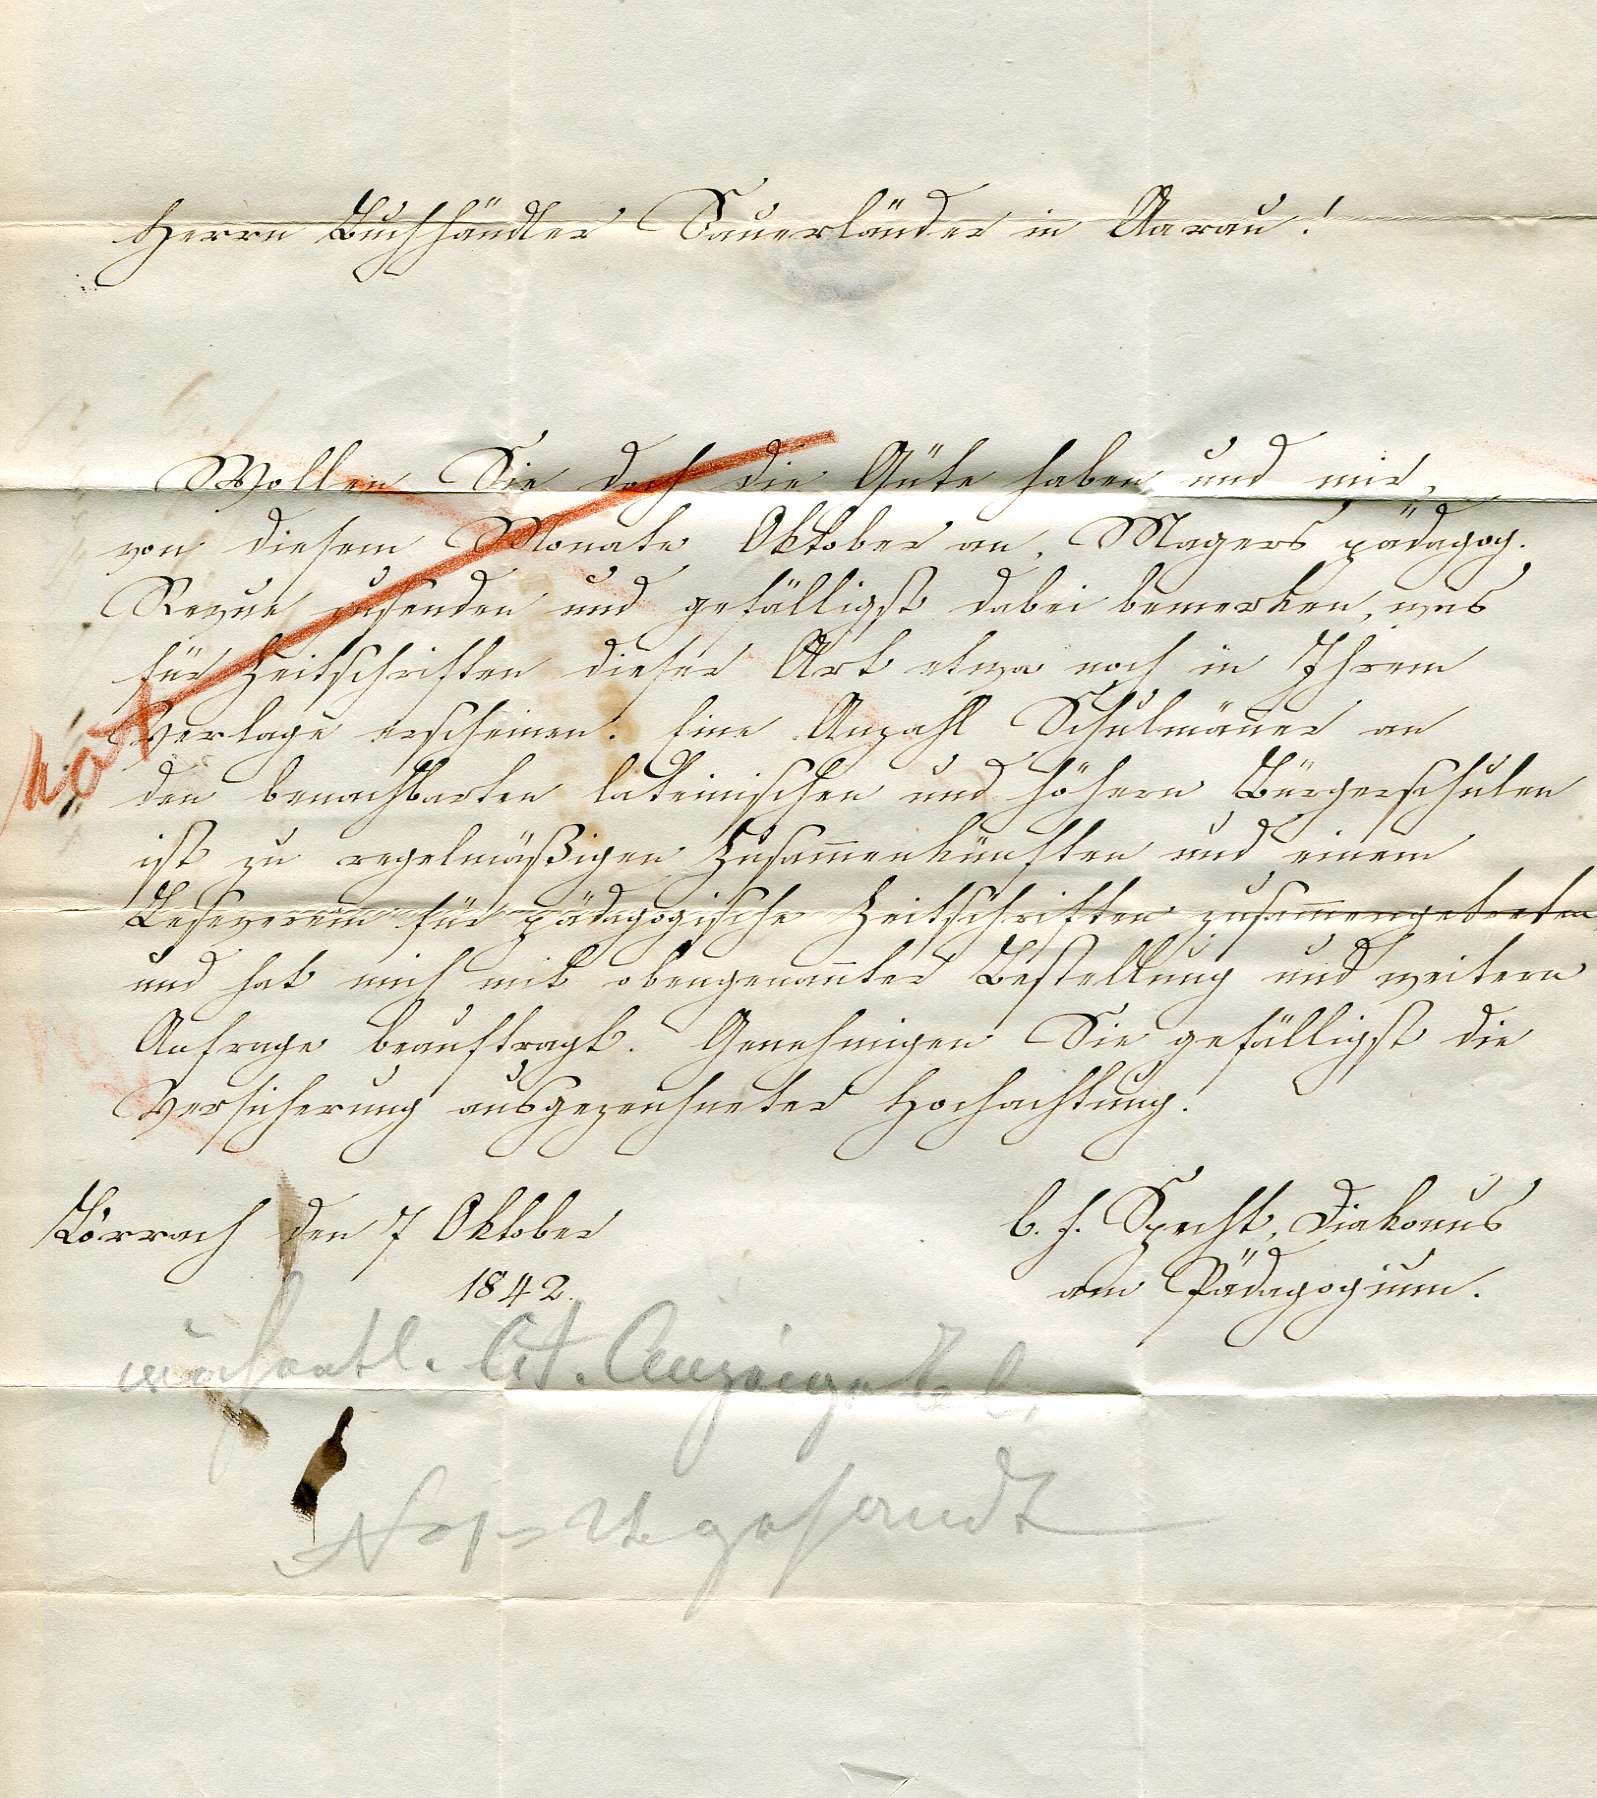 Herrn Buchhändler Sauerländer in Aarau!
Wollen Sie doch die Güte haben und mir,
von diesem Monate Oktober an, Magers pädagog.
Revue zusenden und gefälligst dabei bemerken, was
für Zeitschriften dieser Art etwa noch in Ihrem
Verlage erscheinen. Eine Anzahl Schulmäner an
den benachbarten lateinischen und höhern Bürgerschulen
ist zu regelmäßigen Zusammenkünften und einem
Leseverein für pädagogische Zeitschriften zusammengetreten,
und hat mich mit obengenannter Bestellung und weitern
Anfrage beauftragt. Genehmigen Sie gefälligst die
Versicherung ausgezeichneter Hochachtung.
Lörrach den 7 Oktober
1842.
C. F. Specht, Diakonus
am Pädagogium.
wöchentl. lit. Anzeige
gesandt